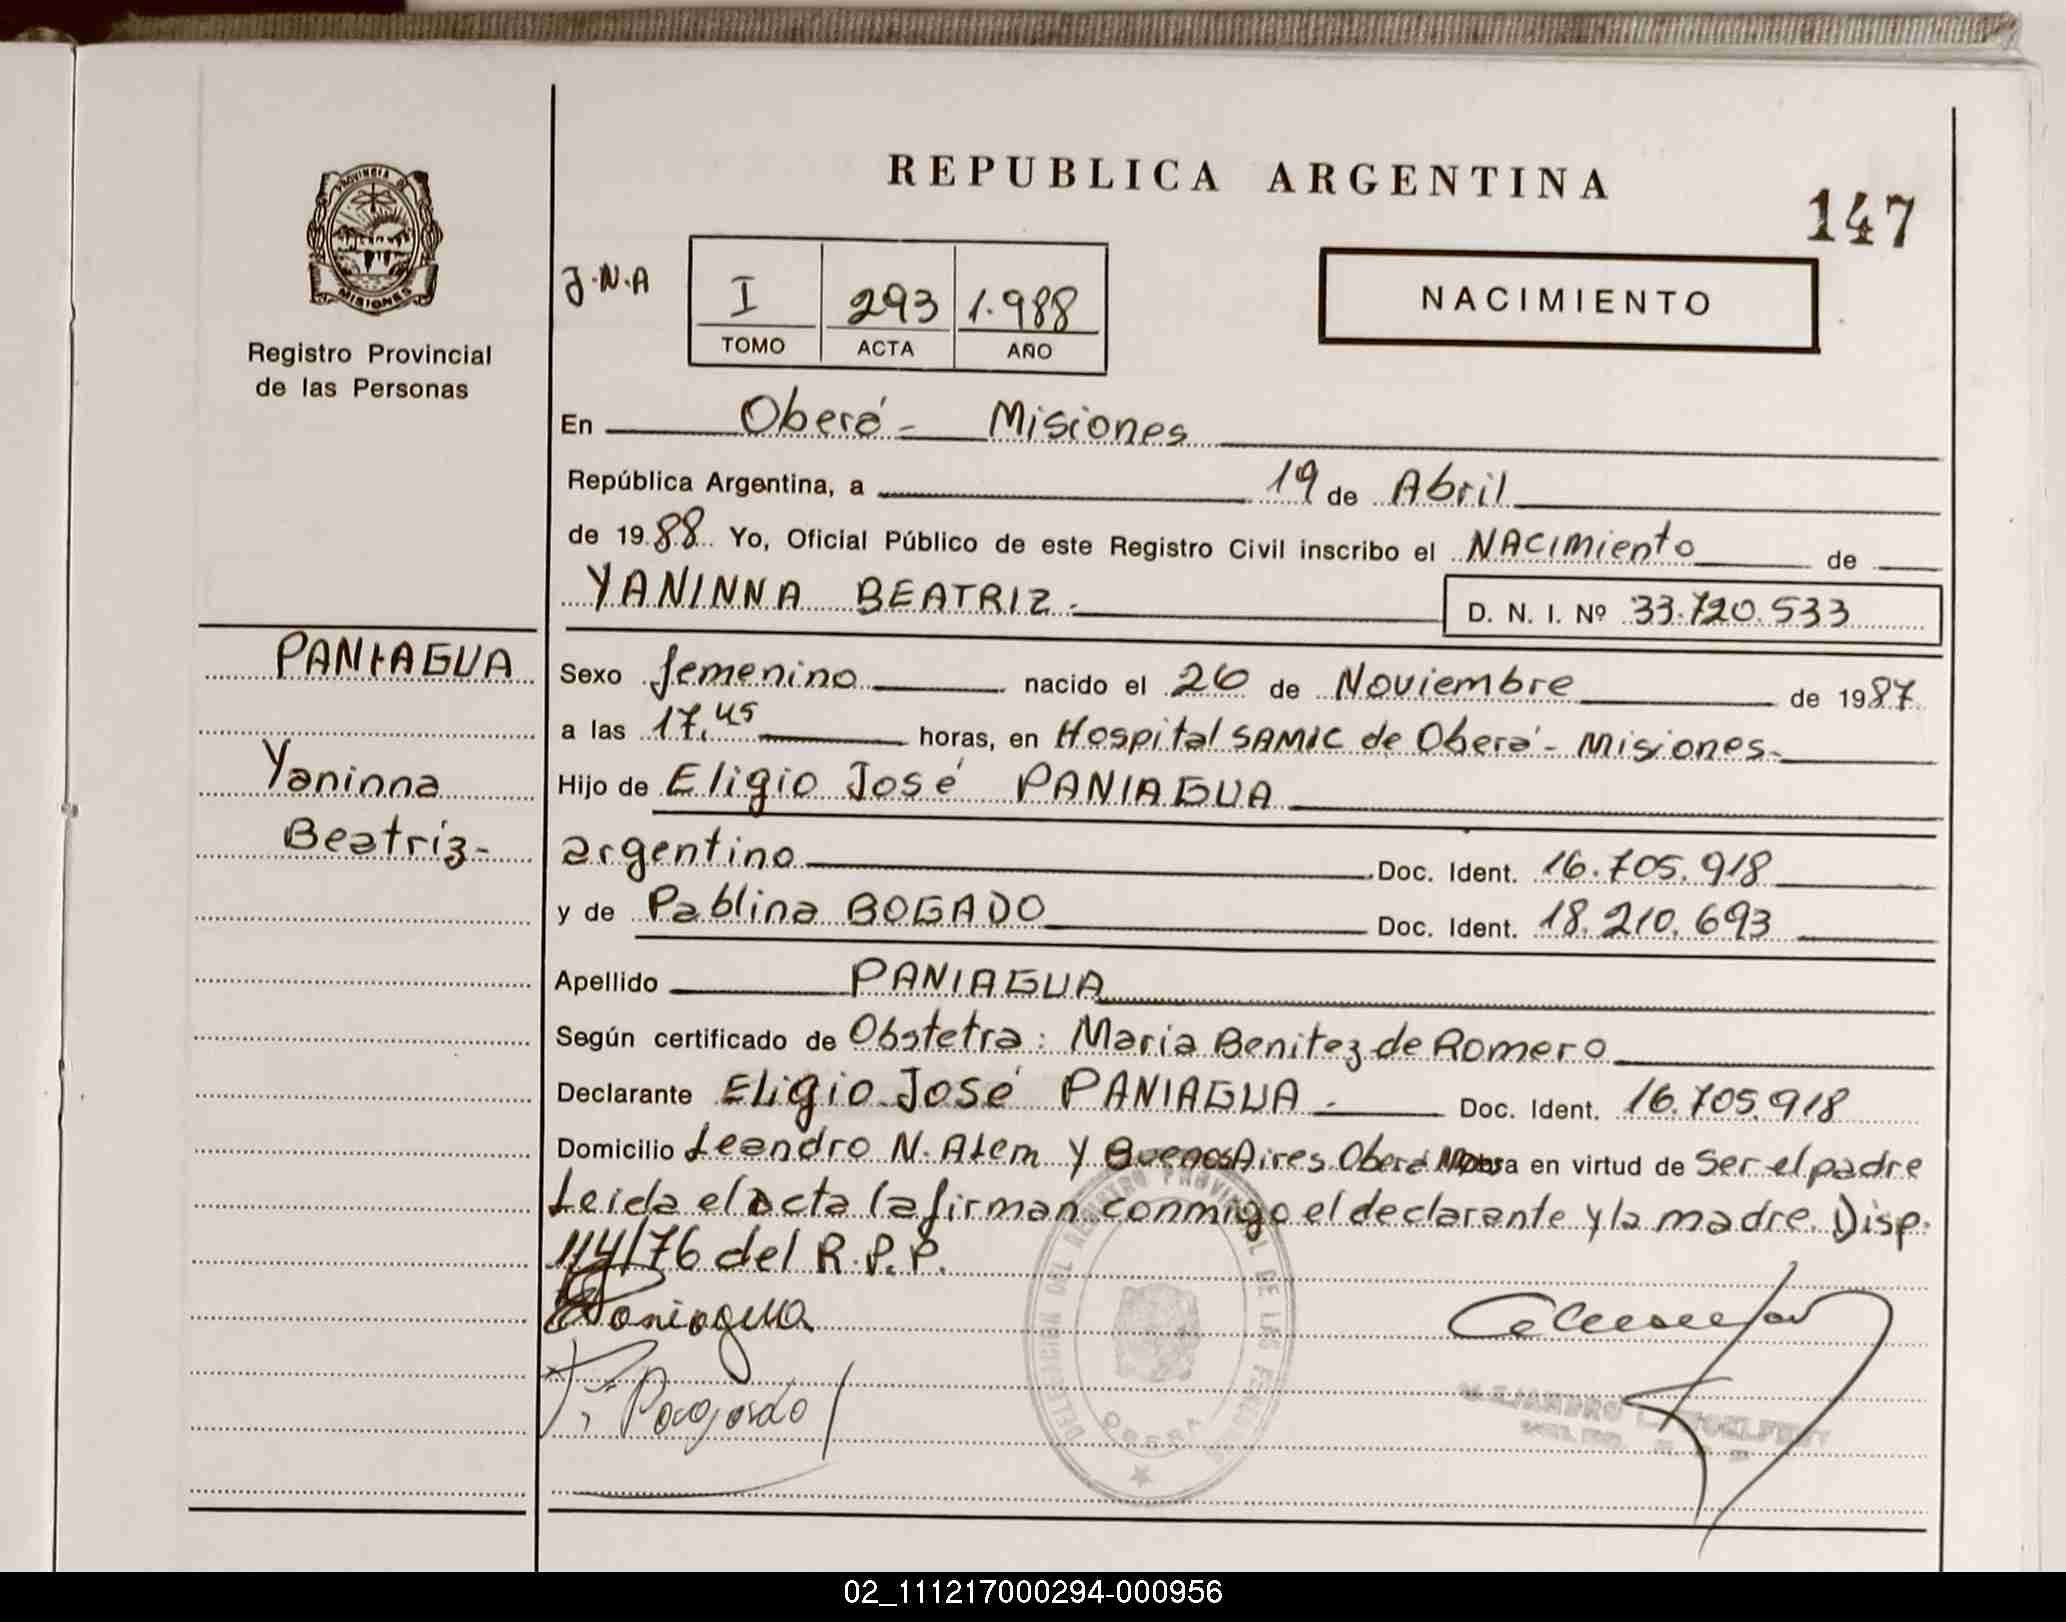 REPUBLICA ARGENTINA
147
PROVINCIA DE
MISIONES
Registro Provincial
de las Personas
J.N.A
I 293 1.988
TOMO ACTA AÑO
NACIMIENTO
En Oberá - Misiones
República Argentina, a 19 de Abril
de 1988 Yo, Oficial Público de este Registro Civil inscribo el NAcimiento de
YANINNA BEATRIZ.-
D. N. I. Nº 33.720.533
PANIAGUA
Yaninna
Beatriz-
Sexo femenino nacido el 26 de Noviembre de 1987
a las 17.45 horas, en Hospital SAMIC de Oberá - Misiones-
Hijo de Eligio José PANIAGUA
argentino Doc. Ident. 16.705.918
y de Pablina BOGADO Doc. Ident. 18.210.693
Apellido PANIAGUA
Según certificado de Obstetra: Maria Benitez de Romero
Declarante Eligio José PANIAGUA.- Doc. Ident. 16.705.918
Domicilio Leandro N. Alem y Buenos Aires Oberá en virtud de ser el padre
Leida el acta la firman conmigo el declarante y la madre. Disp.
114/76 del R.P.P.
Paniagua
DELEGACION DEL REGISTRO PROVINCIAL DE LAS PERSONAS
OBERA
02_111217000294-000956